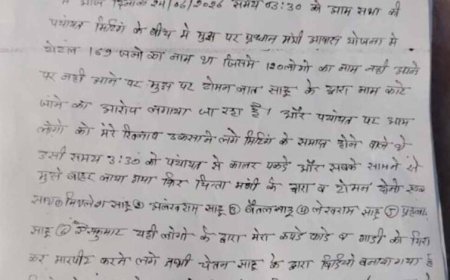 मैं आज दिनांक 24/06/2026 समय 03:30 को आम सभा की
पंचायत मिटिंग के बीच में मुझ पर प्रधान मंत्री आवास योजना में
टोटल 169 जनो का नाम था जिसमें 120 लोगो का नाम नहीं आने
पर नहीं आने पर मुझ पर टोमन लाल साहू के द्वारा नाम काटे
जाने का आरोप लगाया जा रहा है। और पंचायत पर आम
लोगो को मेरे खिलाफ उकसाने लगे मिटिंग के समाप्त होने वाले थे
उसी समय 3:30 को पंचायत से कालर पकड़े और सबके सामने से
मुझे बाहर लाया गया फिर चिन्ता मणी के द्वारा व टोमन दोनों
साहू अलखराम साहू लेखराम साहू
साहू यही लोगो के द्वारा मेरा कपड़े फाड़े व गाड़ी को गिरा
कर मारपीट करने लगे तभी चेतन साहू के द्वारा विडियो बनाया गया है